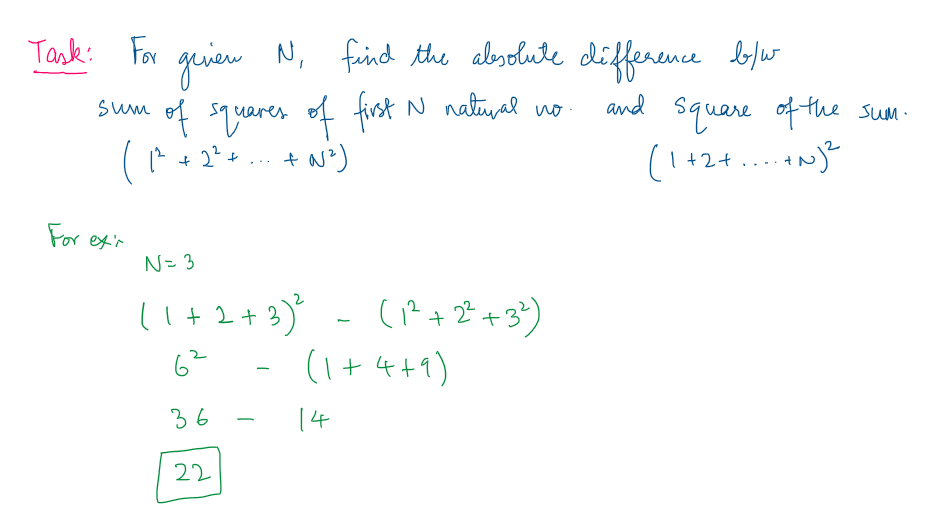 Task: For given N, find the absolute difference b/w
sum of squares of first N natural no. and square of the sum.
(1² + 2² + ... + N²) (1+2+.....+N)²
For ex:-
N=3
(1+2+3)² - (1² + 2² + 3²)
6² - (1+4+9)
36 - 14
22